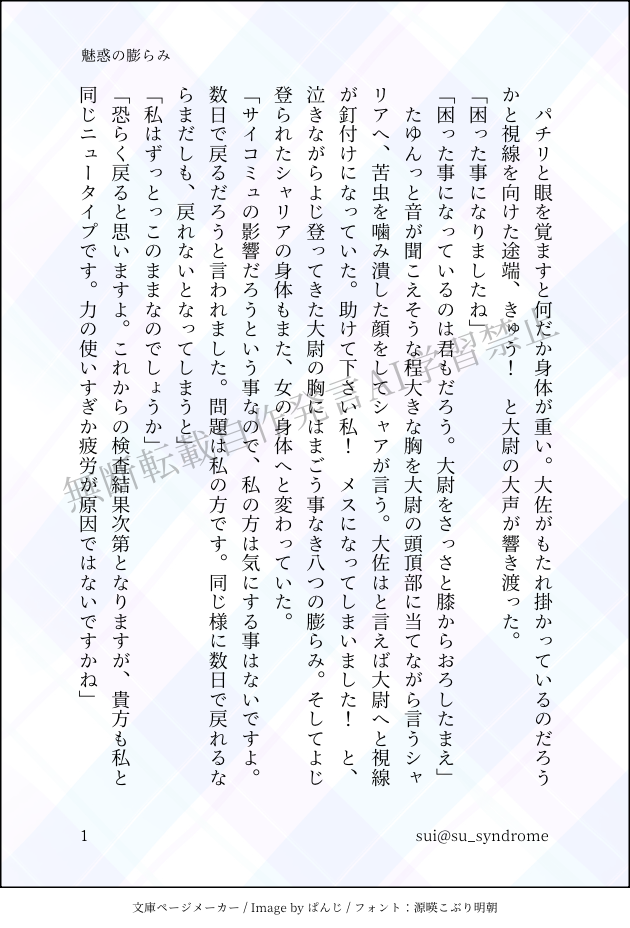 魅惑の膨らみ
　パチリと眼を覚ますと何だか身体が重い。大佐がもたれ掛かっているのだろう
かと視線を向けた途端、きゅう！　と大尉の大声が響き渡った。
「困った事になりましたね」
「困った事になっているのは君もだろう。大尉をさっさと膝からおろしたまえ」
　たゆんっと音が聞こえそうな程大きな胸を大尉の頭頂部に当てながら言うシャ
リアへ、苦虫を噛み潰した顔をしてシャアが言う。大佐はと言えば大尉へと視線
が釘付けになっていた。助けて下さい私！　メスになってしまいました！　と、
泣きながらよじ登ってきた大尉の胸にはまごう事なき八つの膨らみ。そしてよじ
登られたシャリアの身体もまた、女の身体へと変わっていた。
「サイコミュの影響だろうという事なので、私の方は気にする事はないですよ。
数日で戻るだろうと言われました。問題は私の方です。同じ様に数日で戻れるな
らまだしも、戻れないとなってしまうと」
「私はずっとっこのままなのでしょうか」
「恐らく戻ると思いますよ。これからの検査結果次第となりますが、貴方も私と
同じニュータイプです。力の使いすぎか疲労が原因ではないですかね」
無断転載自作発言AI学習禁止
1
sui@su_syndrome
文庫ページメーカー / Image by ぱんじ / フォント：源暎こぶり明朝